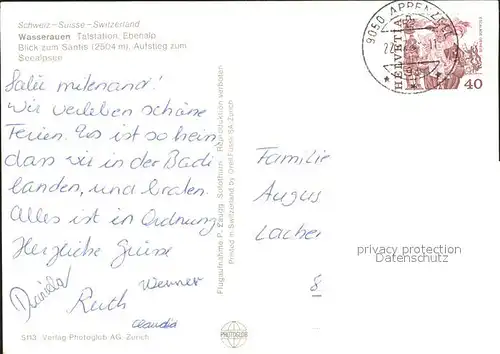 Schweiz-Suisse-Switzerland
Wasserauen Talstation, Ebenalp
Blick zum Säntis (2504 m), Aufstieg zum
Seealpsee
Salü mitenand!
Wir verleben schöne
Ferien. Es ist so heiss
dass wir in der Badi
landen, und braten.
Alles ist in Ordnung
Herzliche Grüsse
Daniela
Ruth Werner
Claudia
5113 Verlag Photoglob AG, Zürich
Flugaufnahme P. Zaugg, Solothurn Reproduktion verboten
Printed in Switzerland by Orell Füssli SA Zürich
PHOTOGLOB
9050 APPENZELL
HELVETIA
40
Familie
Augus
Lacher
8
privacy protection
Datenschutz